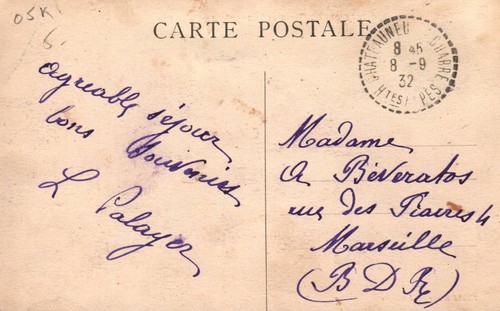 OSKI
6.
CARTE POSTALE
CHATEAUNEU CHABRE
8 45
8 -9
32
HTES ALPES
agréable séjour
bons souvenirs
L Palayer
Madame
A Béveratos
rue des
Marseille
(B D R)